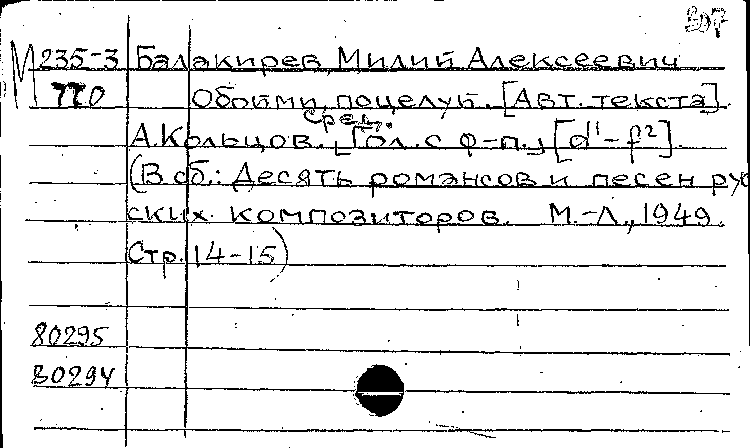 М 235-3 Балакирев, Милий Алексеевич
770 Обойми, поцелуй. [Авт. текста]
сред.
А. Кольцов. [Гол. с ф-п.] [d¹-f²]
(В сб.: Десять романсов и песен рус
ских композиторов. М.-Л., 1949.
Стр. 14-15)
80295
80294